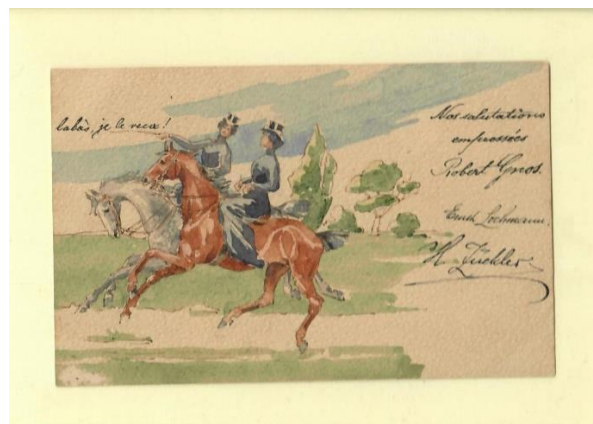 labas, je le veux!
Nos salutations
empressées
Robert Gnos.
Ernst Lochmann.
H. Zuckler